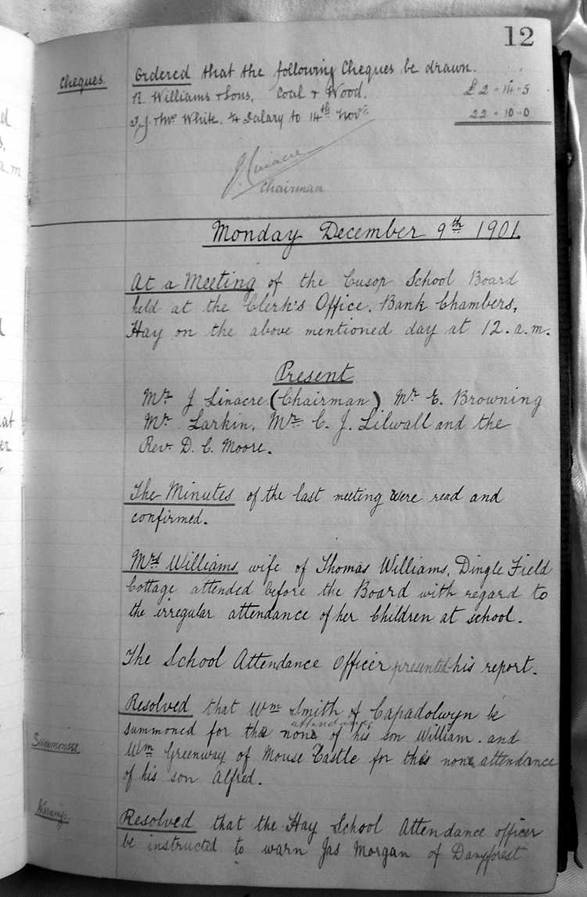 12
Cheques. Ordered that the following Cheques be drawn.
R. Williams & Sons, Coal & Wood. £2-14-5
White. ¼ Salary to 14th Novr 22-10-0
J Linacre
Chairman
Monday December 9th 1901.
At a Meeting of the Cusop School Board
held at the Clerk's Office, Bank Chambers,
Hay on the above mentioned day at 12.a.m.
Present
Mr J Linacre (Chairman) Mr E. Browning
Mr Larkin, Mr C. J. Lilwall and the
Rev. D. C. Moore.
The Minutes of the last meeting were read and
confirmed.
Mrs Williams, wife of Thomas Williams, Dingle Field
Cottage attended before the Board with regard to
the irregular attendance of her Children at school.
The School Attendance Officer presented his report.
Resolved that Wm Smith of Capadolwyn be
attendance
Summons summoned for the none of his son William and
Wm Greenway of Mouse Castle for this none attendance
of his son Alfred.
Resolved that the Hay School Attendance officer
be instructed to warn Jas Morgan of Danyforest